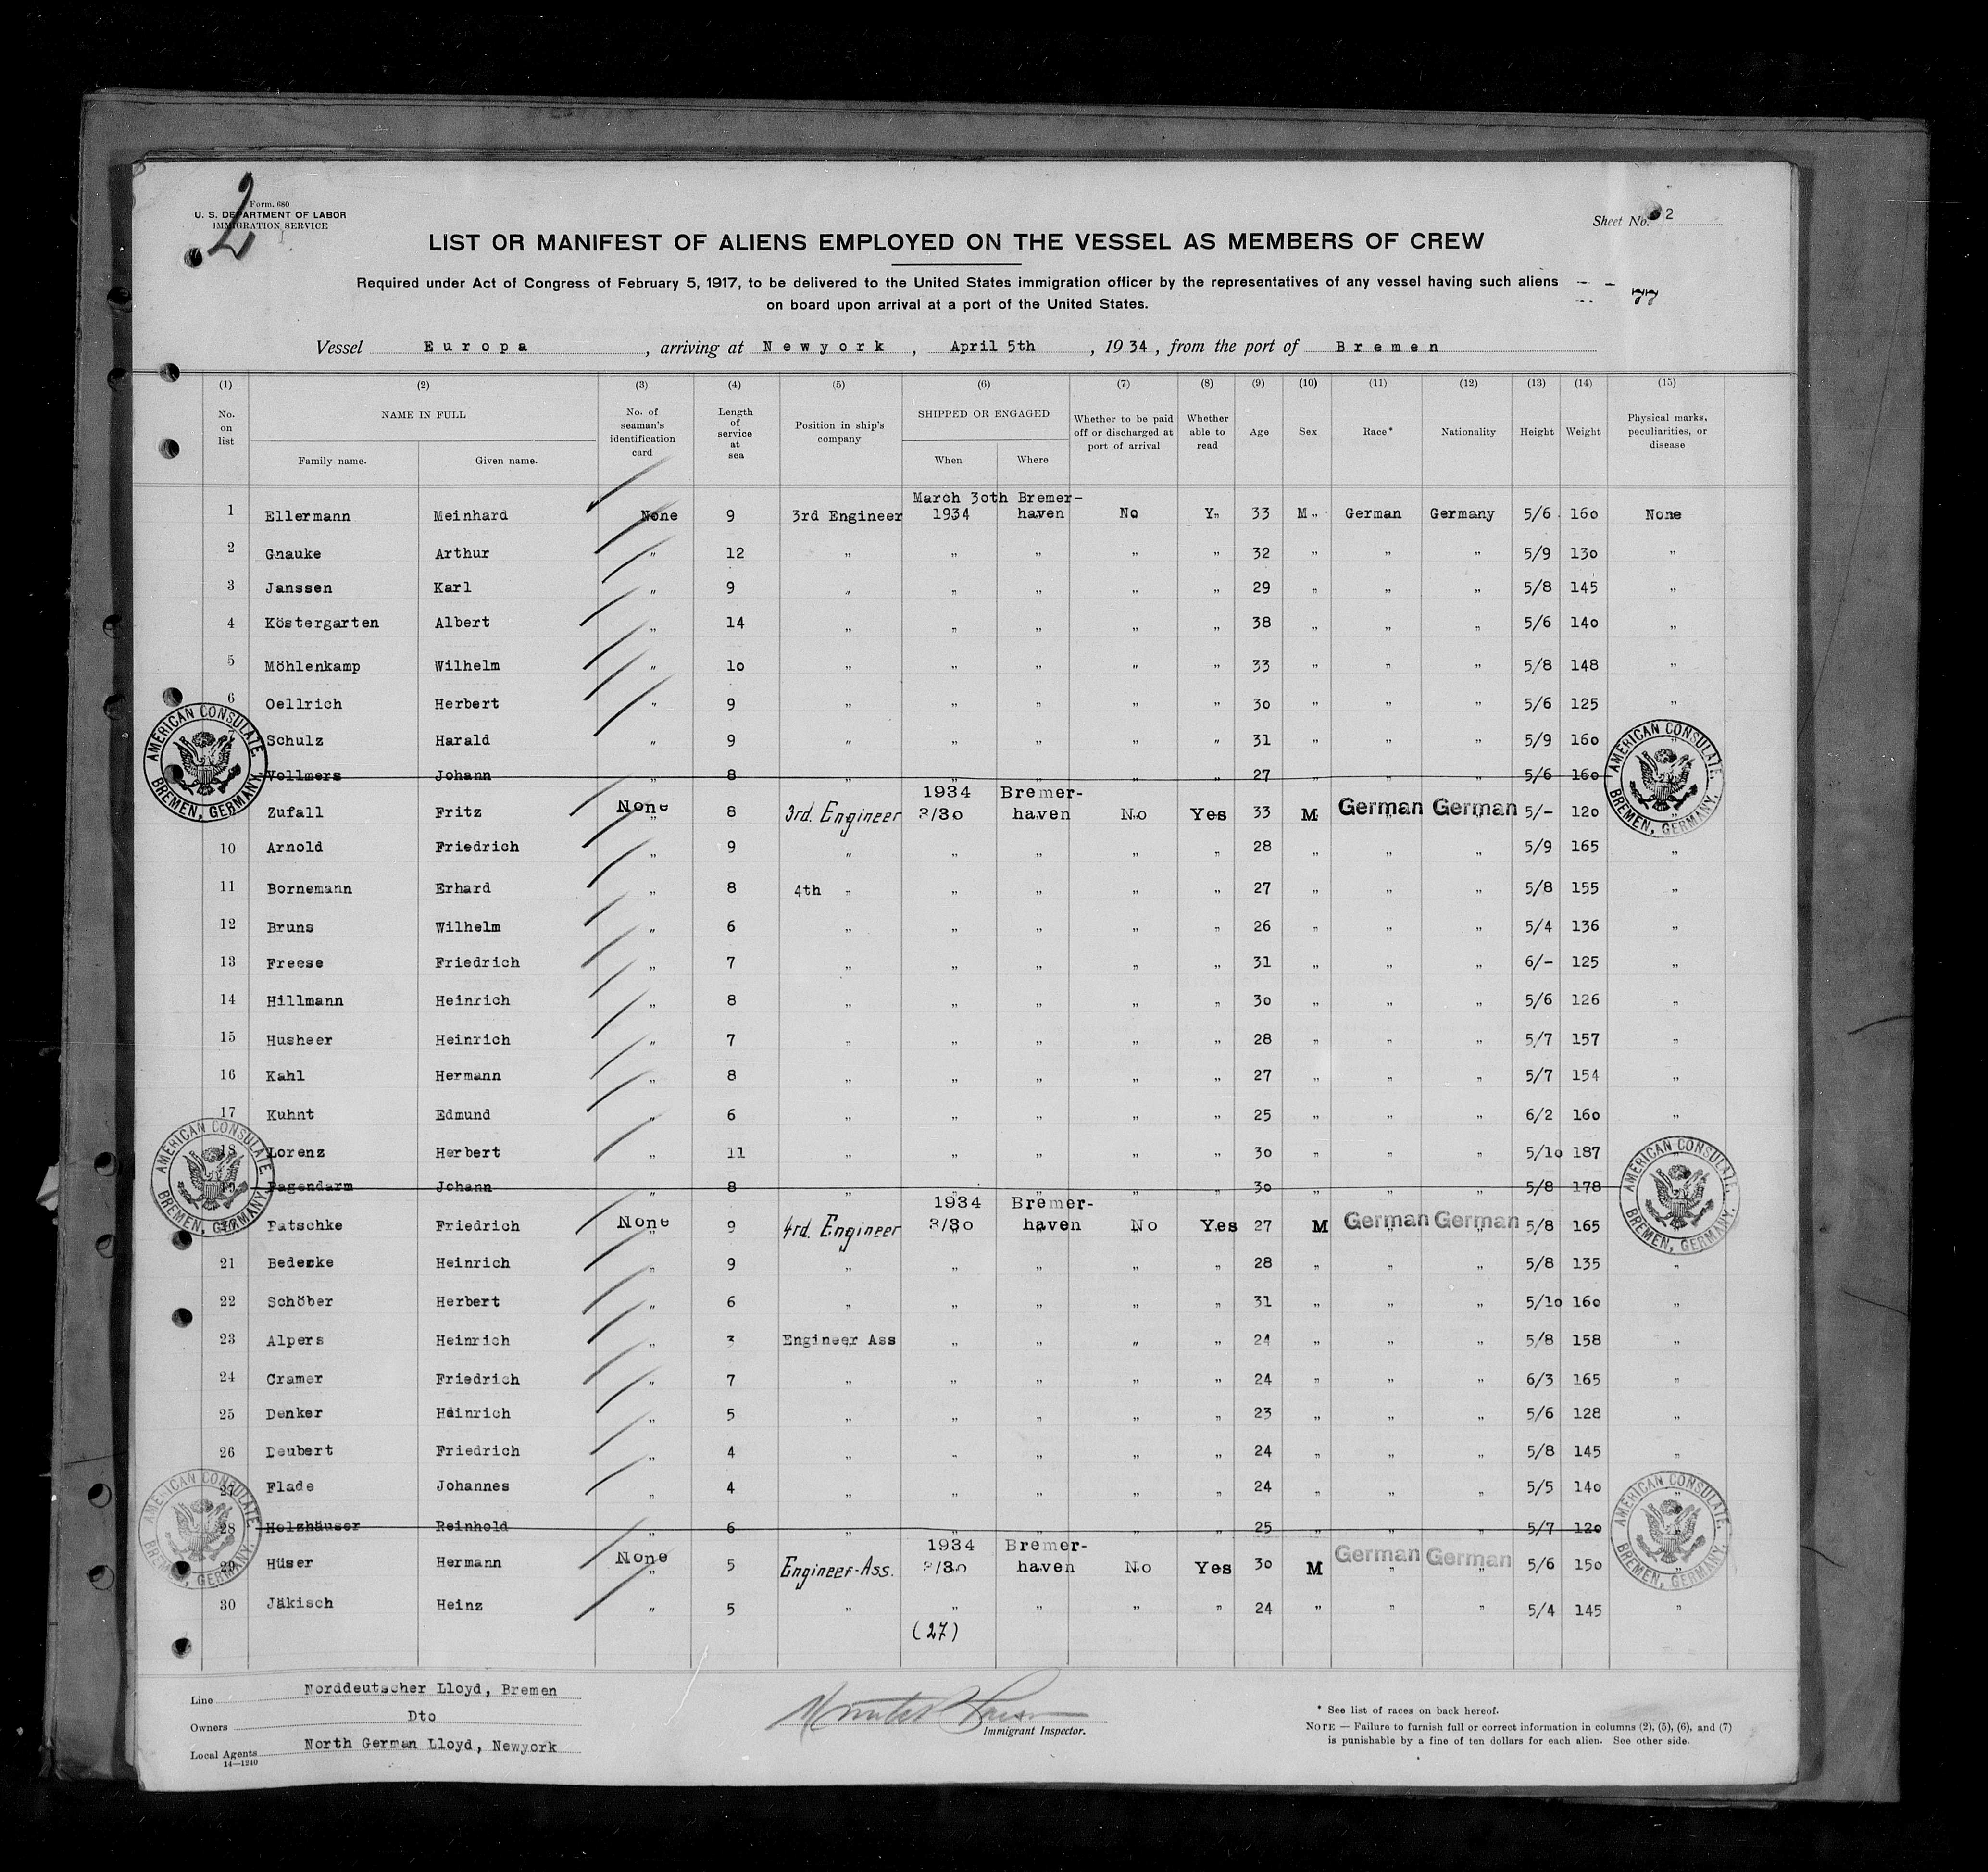 2
Form. 680
U. S. DEPARTMENT OF LABOR
IMMIGRATION SERVICE
Sheet No. 2
LIST OR MANIFEST OF ALIENS EMPLOYED ON THE VESSEL AS MEMBERS OF CREW
Required under Act of Congress of February 5, 1917, to be delivered to the United States immigration officer by the representatives of any vessel having such aliens
on board upon arrival at a port of the United States.
Vessel Europa , arriving at Newyork , April 5th , 1934 , from the port of Bremen
(1) (2) (3) (4) (5) (6) (7) (8) (9) (10) (11) (12) (13) (14) (15)
No. on list NAME IN FULL Family name. Given name. No. of seaman's identification card Length of service at sea Position in ship's company SHIPPED OR ENGAGED When Where Whether to be paid off or discharged at port of arrival Whether able to read Age Sex Race* Nationality Height Weight Physical marks, peculiarities, or disease
March 3oth Bremer-
1 Ellermann Meinhard None 9 3rd Engineer 1934 haven No Y„ 33 M„ German Germany 5/6 16o None
2 Gnauke Arthur „ 12 „ „ „ „ „ 32 „ „ „ 5/9 13o „
3 Janssen Karl „ 9 „ „ „ „ „ 29 „ „ „ 5/8 145 „
4 Köstergarten Albert „ 14 „ „ „ „ „ 38 „ „ „ 5/6 14o „
5 Möhlenkamp Wilhelm „ 1o „ „ „ „ „ 33 „ „ „ 5/8 148 „
6 Oellrich Herbert „ 9 „ „ „ „ „ 3o „ „ „ 5/6 125 „
7 Schulz Harald „ 9 „ „ „ „ „ 31 „ „ „ 5/9 16o „
Vollmers Johann „ 8 „ „ „ „ „ 27 „ „ „ 5/6 16o
1934 Bremer-
Zufall Fritz None 8 3rd. Engineer 3/30 haven No Yes 33 M German German 5/- 12o „
10 Arnold Friedrich „ 9 „ „ „ „ „ 28 „ „ „ 5/9 165 „
11 Bornemann Erhard „ 8 4th „ „ „ „ „ 27 „ „ „ 5/8 155 „
12 Bruns Wilhelm „ 6 „ „ „ „ „ 26 „ „ „ 5/4 136 „
13 Freese Friedrich „ 7 „ „ „ „ „ 31 „ „ „ 6/- 125 „
14 Hillmann Heinrich „ 8 „ „ „ „ „ 3o „ „ „ 5/6 126 „
15 Husheer Heinrich „ 7 „ „ „ „ „ 28 „ „ „ 5/7 157 „
16 Kahl Hermann „ 8 „ „ „ „ „ 27 „ „ „ 5/7 154 „
17 Kuhnt Edmund „ 6 „ „ „ „ „ 25 „ „ „ 6/2 16o „
18 Lorenz Herbert „ 11 „ „ „ „ „ 3o „ „ „ 5/1o 187 „
19 Pagendarm Johann „ 8 „ „ „ „ „ 3o „ „ „ 5/8 178
1934 Bremer-
Patschke Friedrich None 9 4rd. Engineer 3/30 haven No Yes 27 M German German 5/8 165
21 Bedecke Heinrich „ 9 „ „ „ „ „ 28 „ „ „ 5/8 135 „
22 Schöber Herbert „ 6 „ „ „ „ „ 31 „ „ „ 5/1o 16o „
23 Alpers Heinrich „ 3 Engineer Ass „ „ „ „ 24 „ „ „ 5/8 158 „
24 Cramer Friedrich „ 7 „ „ „ „ „ 24 „ „ „ 6/3 165 „
25 Denker Heinrich „ 5 „ „ „ „ „ 23 „ „ „ 5/6 128 „
26 Deubert Friedrich „ 4 „ „ „ „ „ 24 „ „ „ 5/8 145 „
27 Flade Johannes „ 4 „ „ „ „ „ 24 „ „ „ 5/5 14o „
28 Holzhäuser Reinhold „ 6 „ „ „ „ „ 25 „ „ „ 5/7 12o
1934 Bremer-
29 Hüser Hermann None 5 Engineer-Ass. 3/30 haven No Yes 3o M German German 5/6 15o „
30 Jäkisch Heinz „ 5 „ „ „ „ „ 24 „ „ „ 5/4 145 „
(27)
AMERICAN CONSULATE BREMEN, GERMANY.
AMERICAN CONSULATE BREMEN, GERMANY.
AMERICAN CONSULATE BREMEN, GERMANY.
AMERICAN CONSULATE BREMEN, GERMANY.
AMERICAN CONSULATE BREMEN, GERMANY.
AMERICAN CONSULATE BREMEN, GERMANY.
Line Norddeutscher Lloyd, Bremen
Owners Dto
Local Agents North German Lloyd, Newyork
14—1240
Immigrant Inspector.
* See list of races on back hereof.
NOTE — Failure to furnish full or correct information in columns (2), (5), (6), and (7)
is punishable by a fine of ten dollars for each alien. See other side.